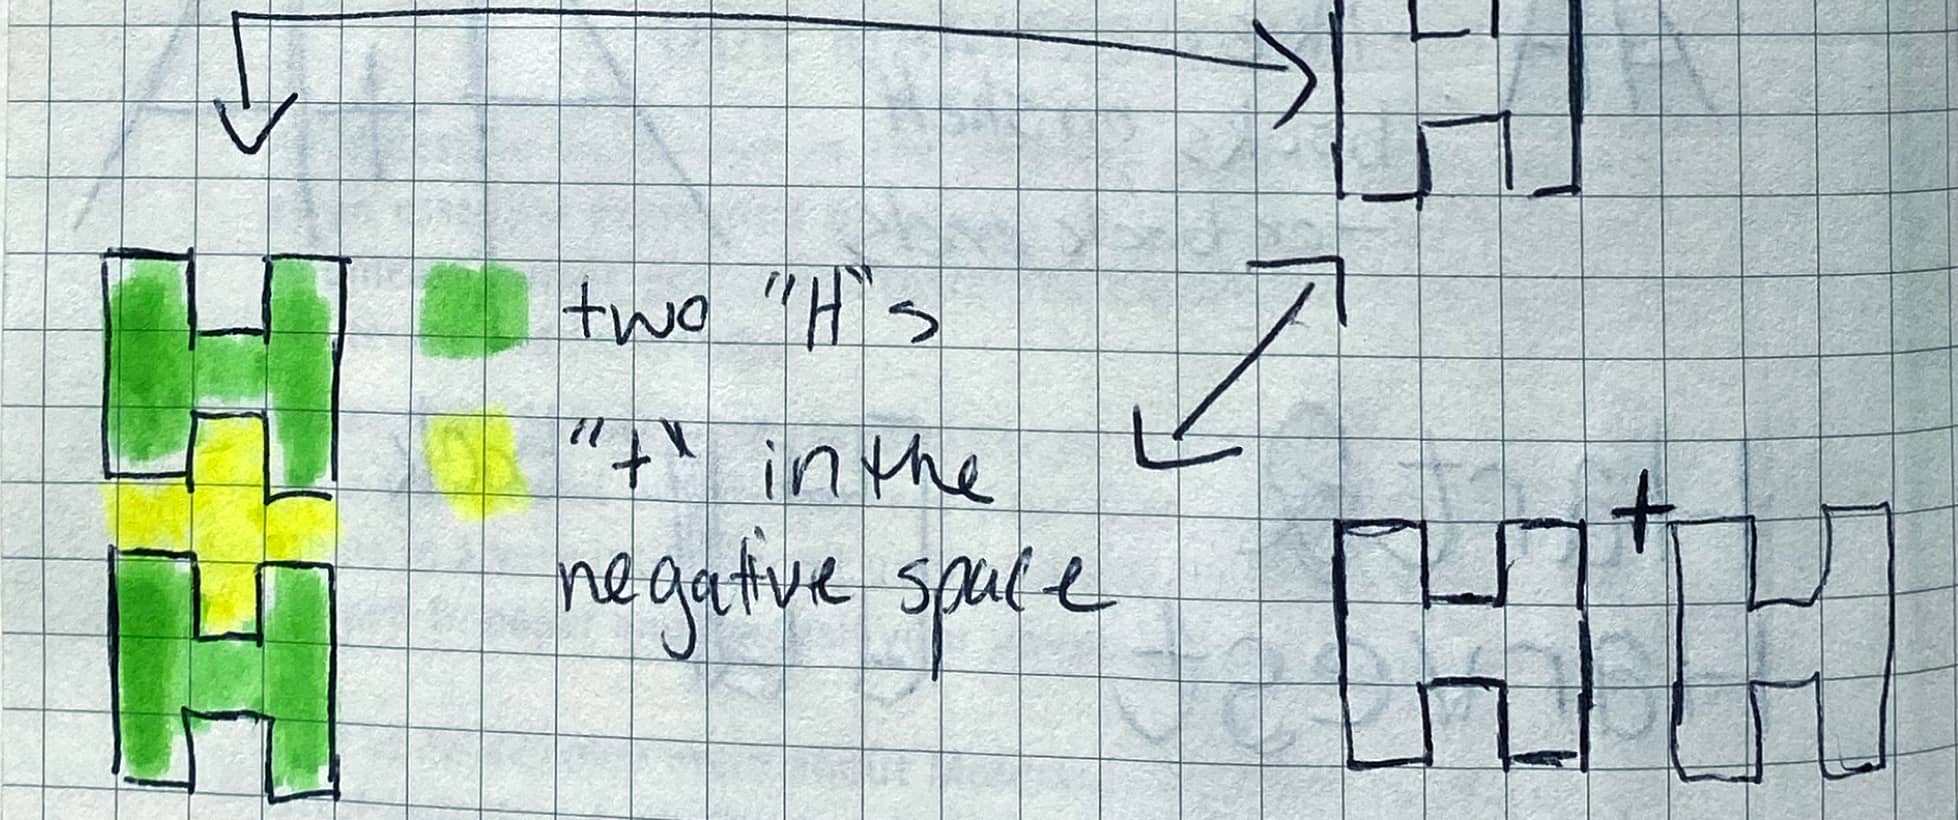 H
two "H"s
"t" in the
negative space
H
H
H+H